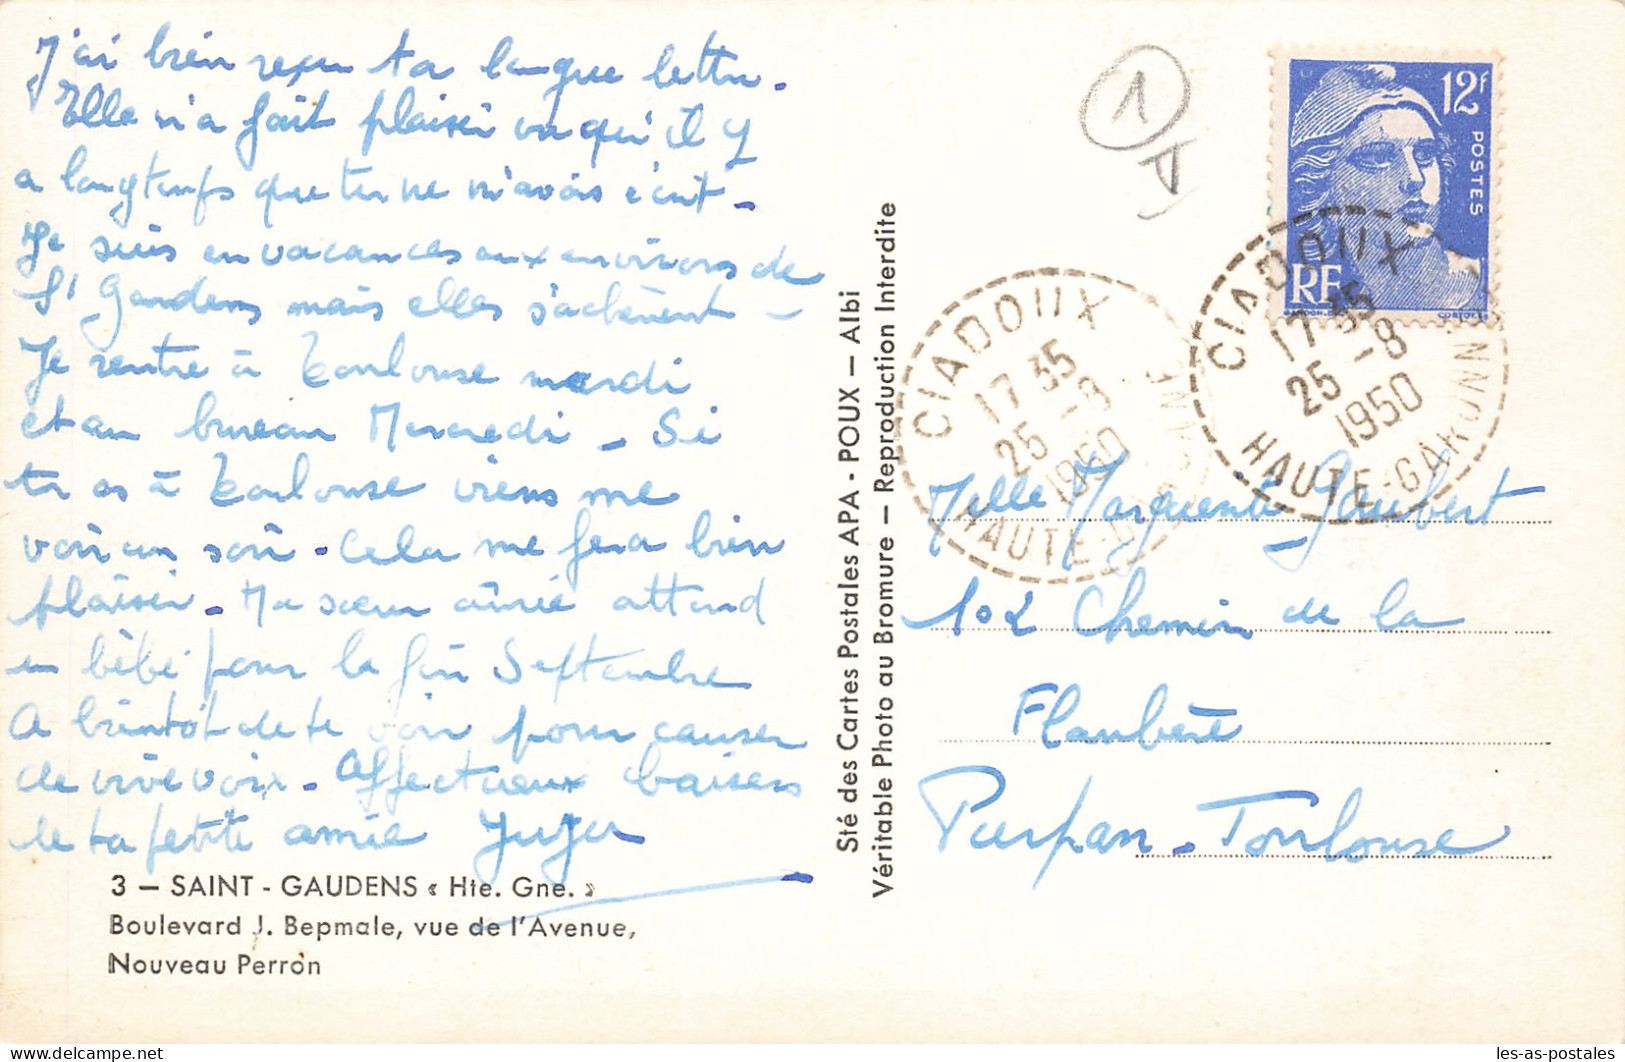 J'ai bien reçu ta longue lettre.
Elle m'a fait plaisir vu qu'il y
a longtemps que tu ne m'avais écrit -
Je suis en vacances aux environs de
St Gaudens mais elles s'achèvent -
Je rentre à Toulouse mardi
et au bureau Mercredi - Si
tu as à Toulouse viens me
voir un soir - Cela me fera bien
plaisir - Ma sœur aînée attend
un bébé pour la fin Septembre
A bientôt de te voir pour causer
de vive voix - Affectueux baisers
de ta petite amie
3 — SAINT - GAUDENS « Hte. Gne. »
Boulevard J. Bepmale, vue de l'Avenue,
Nouveau Perron
Sté des Cartes Postales APA - POUX — Albi
Véritable Photo au Bromure — Reproduction Interdite
1
12F
POSTES
RF
CIADOUX
17 35
25 -8
1950
HAUTE-GARONNE
CIADOUX
17 35
25 -8
1950
HAUTE-GARONNE
Melle Marguerite Gaubert
102 Chemin de la
Flambère
Purpan - Toulouse
les-as-postales